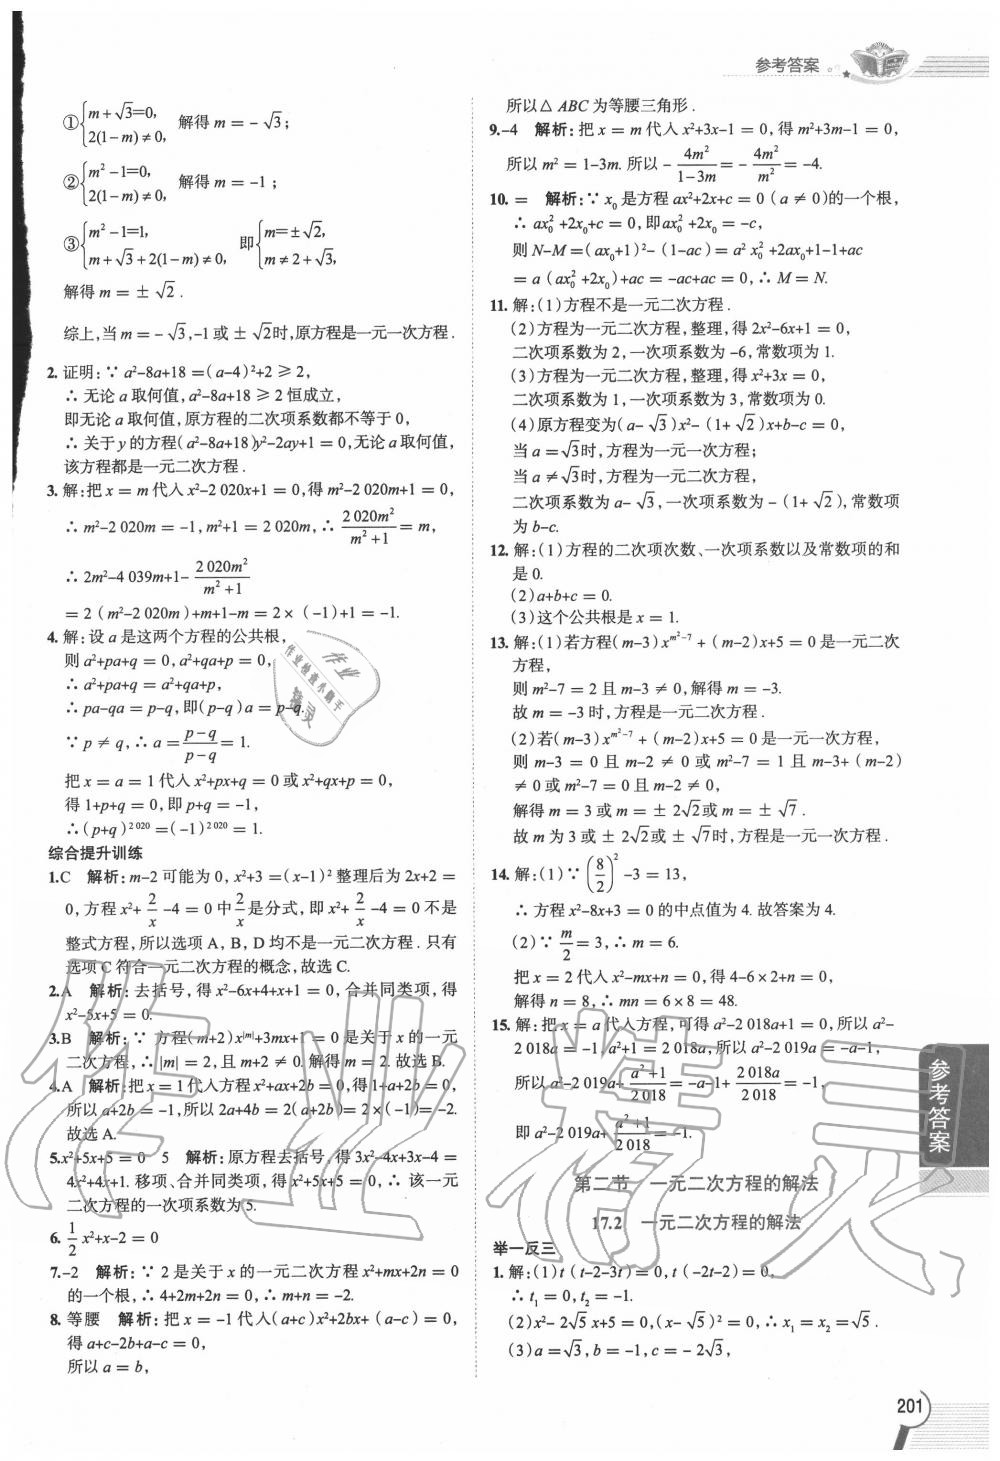 参考答案
①{m+√3=0, 2(1-m)≠0, 解得 m=-√3;
②{m²-1=0, 2(1-m)≠0, 解得 m=-1;
③{m²-1=1, m+√3+2(1-m)≠0, 即{m=±√2, m≠2+√3,
解得 m=±√2.
综上,当 m=-√3,-1 或 ±√2时,原方程是一元一次方程.
2. 证明:∵ a²-8a+18=(a-4)²+2≥2,
∴ 无论 a 取何值,a²-8a+18≥2 恒成立,
即无论 a 取何值,原方程的二次项系数都不等于 0,
∴ 关于 y 的方程(a²-8a+18)y²-2ay+1=0,无论 a 取何值,
该方程都是一元二次方程.
3. 解:把 x=m 代入 x²-2 020x+1=0,得 m²-2 020m+1=0,
∴ m²-2 020m=-1,m²+1=2 020m,∴ 2 020m²/(m²+1)=m,
∴ 2m²-4 039m+1-2 020m²/(m²+1)
=2(m²-2 020m)+m+1-m=2×(-1)+1=-1.
4. 解:设 a 是这两个方程的公共根,
则 a²+pa+q=0,a²+qa+p=0,
∴ a²+pa+q=a²+qa+p,
∴ pa-qa=p-q,即(p-q)a=p-q.
∵ p≠q,∴ a=(p-q)/(p-q)=1.
把 x=a=1 代入 x²+px+q=0 或 x²+qx+p=0,
得 1+p+q=0,即 p+q=-1,
∴(p+q)²⁰²⁰=(-1)²⁰²⁰=1.
综合提升训练
1.C 解析:m-2 可能为 0,x²+3=(x-1)² 整理后为 2x+2=
0,方程 x²+2/x-4=0 中 2/x 是分式,即 x²+2/x-4=0 不是
整式方程,所以选项 A, B, D 均不是一元二次方程.只有
选项 C 符合一元二次方程的概念,故选 C.
2.A 解析:去括号,得 x²-6x+4+x+1=0,合并同类项,得
x²-5x+5=0.
3.B 解析:∵ 方程(m+2)x|m|+3mx+1=0 是关于 x 的一元
二次方程,∴|m|=2,且 m+2≠0.解得 m=2. 故选 B.
4.A 解析:把 x=1 代入方程 x²+ax+2b=0,得 1+a+2b=0,
所以 a+2b=-1,所以 2a+4b=2(a+2b)=2×(-1)=-2.
故选 A.
5.x²+5x+5=0 5 解析:原方程去括号,得 3x²-4x+3x-4=
4x²+4x+1. 移项、合并同类项,得 x²+5x+5=0,∴ 该一元
二次方程的一次项系数为 5.
6. 1/2 x²+x-2=0
7.-2 解析:∵ 2 是关于 x 的一元二次方程 x²+mx+2n=0
的一个根,∴ 4+2m+2n=0,∴ m+n=-2.
8. 等腰 解析:把 x=-1 代入(a+c)x²+2bx+(a-c)=0,
得 a+c-2b+a-c=0,
所以 a=b,
所以△ABC 为等腰三角形.
9.-4 解析:把 x=m 代入 x²+3x-1=0,得 m²+3m-1=0,
所以 m²=1-3m. 所以 -4m²/(1-3m)=-4m²/m²=-4.
10. = 解析:∵ x₀ 是方程 ax²+2x+c=0(a≠0)的一个根,
∴ ax₀²+2x₀+c=0,即 ax₀²+2x₀=-c,
则 N-M=(ax₀+1)²-(1-ac)=a²x₀²+2ax₀+1-1+ac
=a(ax₀²+2x₀)+ac=-ac+ac=0,∴ M=N.
11. 解:(1)方程不是一元二次方程.
(2)方程为一元二次方程,整理,得 2x²-6x+1=0,
二次项系数为 2,一次项系数为 -6,常数项为 1.
(3)方程为一元二次方程,整理,得 x²+3x=0,
二次项系数为 1,一次项系数为 3,常数项为 0.
(4)原方程变为(a-√3)x²-(1+√2)x+b-c=0,
当 a=√3时,方程为一元一次方程;
当 a≠√3时,方程为一元二次方程,
二次项系数为 a-√3,一次项系数为 -(1+√2),常数项
为 b-c.
12. 解:(1)方程的二次项次数、一次项系数以及常数项的和
是 0.
(2)a+b+c=0.
(3)这个公共根是 x=1.
13. 解:(1)若方程(m-3)x^(m²-7)+(m-2)x+5=0 是一元二次
方程,
则 m²-7=2 且 m-3≠0,解得 m=-3.
故 m=-3 时,方程是一元二次方程.
(2)若(m-3)x^(m²-7)+(m-2)x+5=0 是一元一次方程,
则 m-3=0 且 m-2≠0 或 m²-7=1 且 m-3+(m-2)
≠0 或 m²-7=0 且 m-2≠0,
解得 m=3 或 m=±2√2或 m=±√7.
故 m 为 3 或 ±2√2或 ±√7时,方程是一元一次方程.
14. 解:(1)∵ (8/2)²-3=13,
∴ 方程 x²-8x+3=0 的中点值为 4. 故答案为 4.
(2)∵ m/2=3,∴ m=6.
把 x=2 代入 x²-mx+n=0,得 4-6×2+n=0,
解得 n=8,∴ mn=6×8=48.
15. 解:把 x=a 代入方程,可得 a²-2 018a+1=0,所以 a²-
2 018a=-1,a²+1=2 018a,所以 a²-2 019a=-a-1,
所以 a²-2 019a+(a²+1)/2 018=-a-1+2 018a/2 018=-1,
即 a²-2 019a+(a²+1)/2 018=-1.
第二节 一元二次方程的解法
17.2 一元二次方程的解法
举一反三
1. 解:(1)t(t-2-3t)=0,t(-2t-2)=0,
∴ t₁=0,t₂=-1.
(2)x²-2√5x+5=0,(x-√5)²=0,∴ x₁=x₂=√5.
(3)a=√3,b=-1,c=-2√3,
参考答案
201
作业
作业检查小助手
精灵
作业精灵